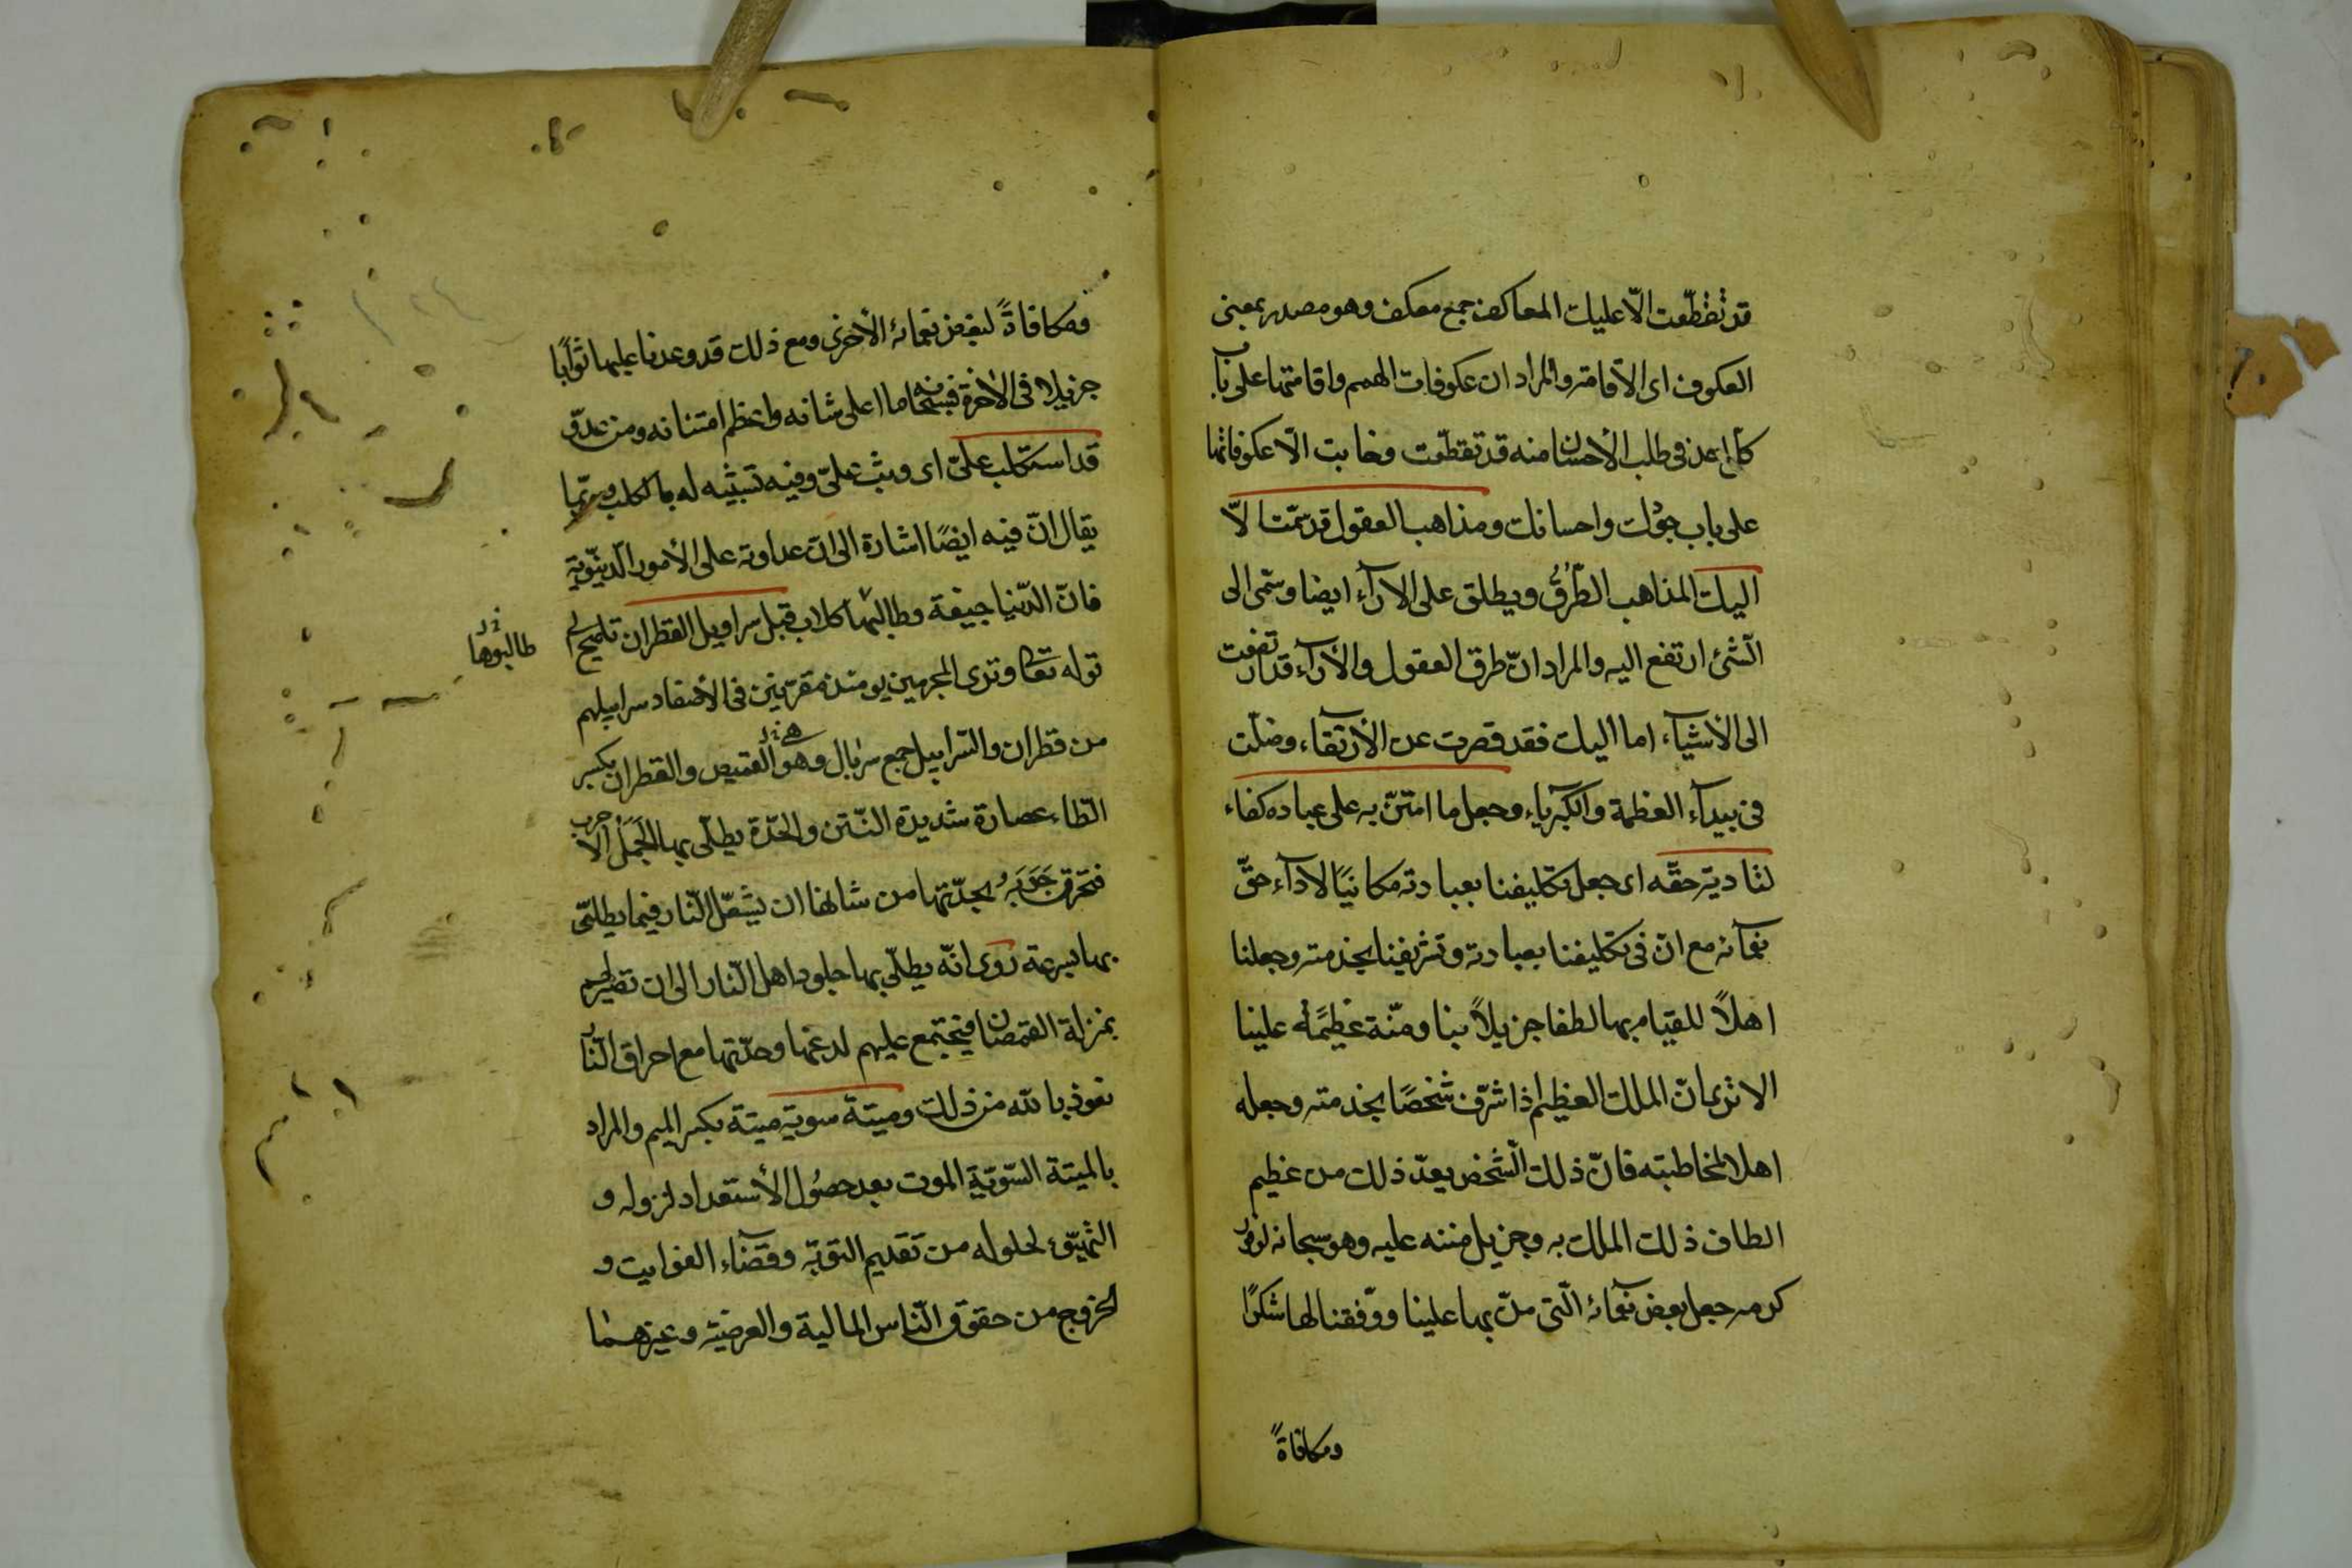 قد تقطّعت الّا عليك المعاكف جمع معكف وهو مصدر بمعنى
العكوف اى الاقامة والمراد ان عكوفات الهمم واقامتها على باب
كل احد فى طلب الأحسان منه قد تقطّعت وخابت الّا عكوفاتها
على باب جودك واحسانك ومذاهب العقول قد سمت الّا
اليك المذاهب الطُّرُق ويطلق على الآرآء ايضا وسمى الى
الشئ ارتفع اليه والمراد انّ طرق العقول والأرآء قد ارتفعت
الى الأشيآء اما اليك فقد قصرت عن الأرتقاء وضلّت
فى بيدآء العظمة والكبرياء وجعل ما امتنّ به على عباده كفاء
لتادية حقّه اى جعل تكليفنا بعبادته مكافيًا لادآء حقّ
نعمآئه مع انّ فى تكليفنا بعبادته وتشريفنا بخدمته وجعلنا
اهلاً للقيام بها لطفا جزيلاً بنا ومنّة عظيمة علينا
الا ترى انّ الملك العظيم اذا شرّف شخصًا بخدمته وجعله
اهلا لمخاطبته فانّ ذلك الشخص يعدّ ذلك من عظيم
الطاف ذلك الملك به وجزيل مننه عليه وهو سبحانه لوفور
كرمه جعل بعض نعمائه الّتى منّ بها علينا ووفّقنا لها شكرًا
ومكافاةً
ومكافاةً لبعض نعمائه الأخرى ومع ذلك قد وعدنا عليها ثوابًا
جزيلا فى الآخرة فسبحانه ما اعلى شانه واعظم امتنانه ومن عدوّ
قد استكلب علىّ اى وثب علىّ وفيه تشبيه له بالكلب وربّما
يقال انّ فيه ايضًا اشارة الى ان عداوته على الأمور الدّنيويّة
فانّ الدّنيا جيفة وطالبها كلاب قبل سراويل القطران تلميح الى
طالبوها
قوله تعالى وترى المجرمين يومئذ مقرّنين فى الأصفاد سرابيلهم
من قطران والسّرابيل جمع سربال وهو القميص والقطران بكسر
الطّاء عصارة شديدة النّتن والحدّة يطلى بها الجمل الأجرب
فتحرق جربه بحدّتها من شانها ان يشتعل النّار فيما يطلى
بها بسرعة روى انّه يطلى بها جلود اهل النّار الى ان تصير لهم
بمنزلة القمصان فيجتمع عليهم لدغها وحدّتها مع احراق النّار
نعوذ بالله من ذلك وميتة سوية ميتة بكسر الميم والمراد
بالميتة السّويّة الموت بعد حصول الأستعداد لنزوله و
التهيّؤ لحلوله من تقديم التوبة وقضاء الفوايت و
الخروج من حقوق النّاس المالية والعرضية وغيرهما